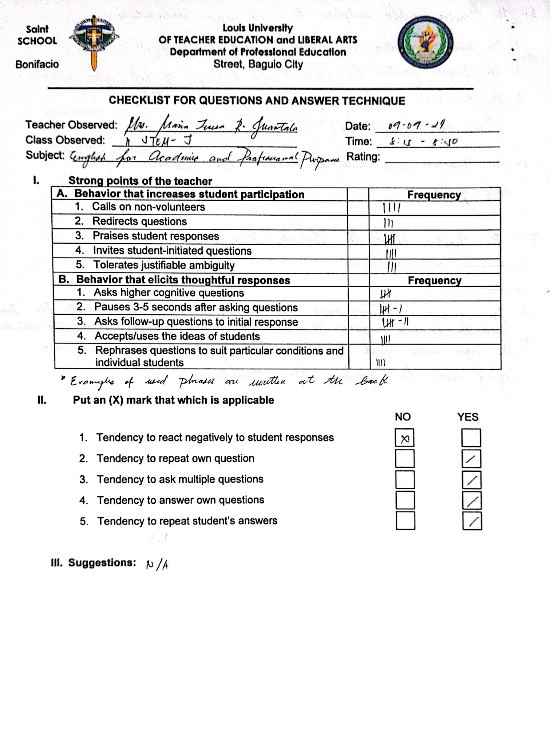 Saint Louis University
SCHOOL OF TEACHER EDUCATION and LIBERAL ARTS
Department of Professional Education
Bonifacio Street, Baguio City
CHECKLIST FOR QUESTIONS AND ANSWER TECHNIQUE
Teacher Observed: Mrs. Maria Teresa R. Date: 09-09-24
Class Observed: 11 STEM-J Time: 8:10
Subject: English for Academic and Professional Purpose Rating:
I. Strong points of the teacher
A. Behavior that increases student participation Frequency
1. Calls on non-volunteers ||||
2. Redirects questions |||
3. Praises student responses
4. Invites student-initiated questions ||||
5. Tolerates justifiable ambiguity |||
B. Behavior that elicits thoughtful responses Frequency
1. Asks higher cognitive questions
2. Pauses 3-5 seconds after asking questions
3. Asks follow-up questions to initial response
4. Accepts/uses the ideas of students ||||
5. Rephrases questions to suit particular conditions and
individual students ||||
* Examples of used phrases are written at the back
II. Put an (X) mark that which is applicable
NO YES
1. Tendency to react negatively to student responses X
2. Tendency to repeat own question /
3. Tendency to ask multiple questions /
4. Tendency to answer own questions /
5. Tendency to repeat student's answers /
III. Suggestions: N/A